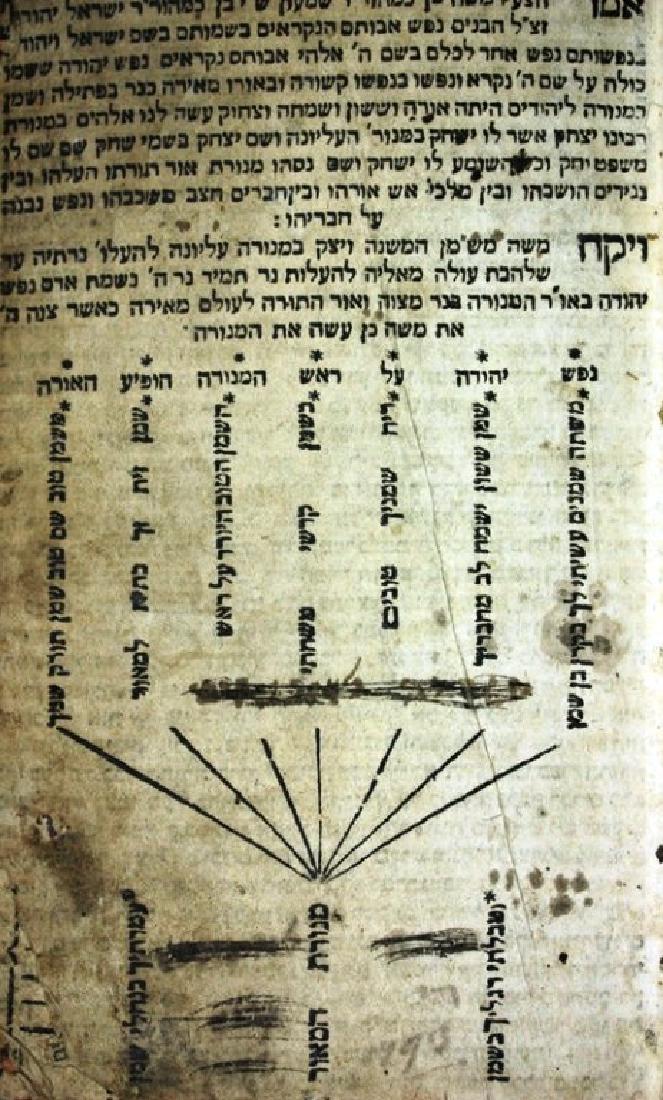 אמר
זצ"ל הבנים נפש אבותם הנקראים בשמותם בשם ישראל ויהוד'
בנפשותם נפש אחר לכלם בשם ה' אלהי אבותם נקראים נפש יהודה ששמן
כולה על שם ה' נקרא ונפשו בנפשו קשורה ובאורו מאירה כנר בפתילה ושמן
במנורה ליהודים היתה אורה וששון ושמחה וצחוק עשה לנו אלהים במנורת
רבינו יצחק אשר לו ישחק העליונה ושם יצחק בשמי שחק שם שם לו
משפט יחק לו ישחק ושם נסהו מנורת אור תורתו העלהו ובין
נגידים הושבתו ובין מלכי אש אורהו ובין חברים חצב משכבהו ונפש נבנה
על חבריהו :
ויקח משה משמן המשנה ויצק במנורה עליונה להעלו' נרתיה עד
שלהבת עולה מאליה להעלות נר תמיד נר ה' נשמת אדם נפש
יהודה באו"ר המנורה בנר מצוה ואור התורה לעולם מאירה כאשר צוה ה'
את משה כן עשה את המנורה
נפש יהודה על ראש המנורה הופיע האורה
משחה שמנים עשיתי לך בן שמן
שמן ששון ישמח לב
לריח שמניך טובים
כשמן קדשי משחתי
השמן הטוב היורד על ראש
שמן זית זך כתית למאור
משמן טוב שם טוב שמן תורק שמך
בשמן
מנורת המאור
שמן